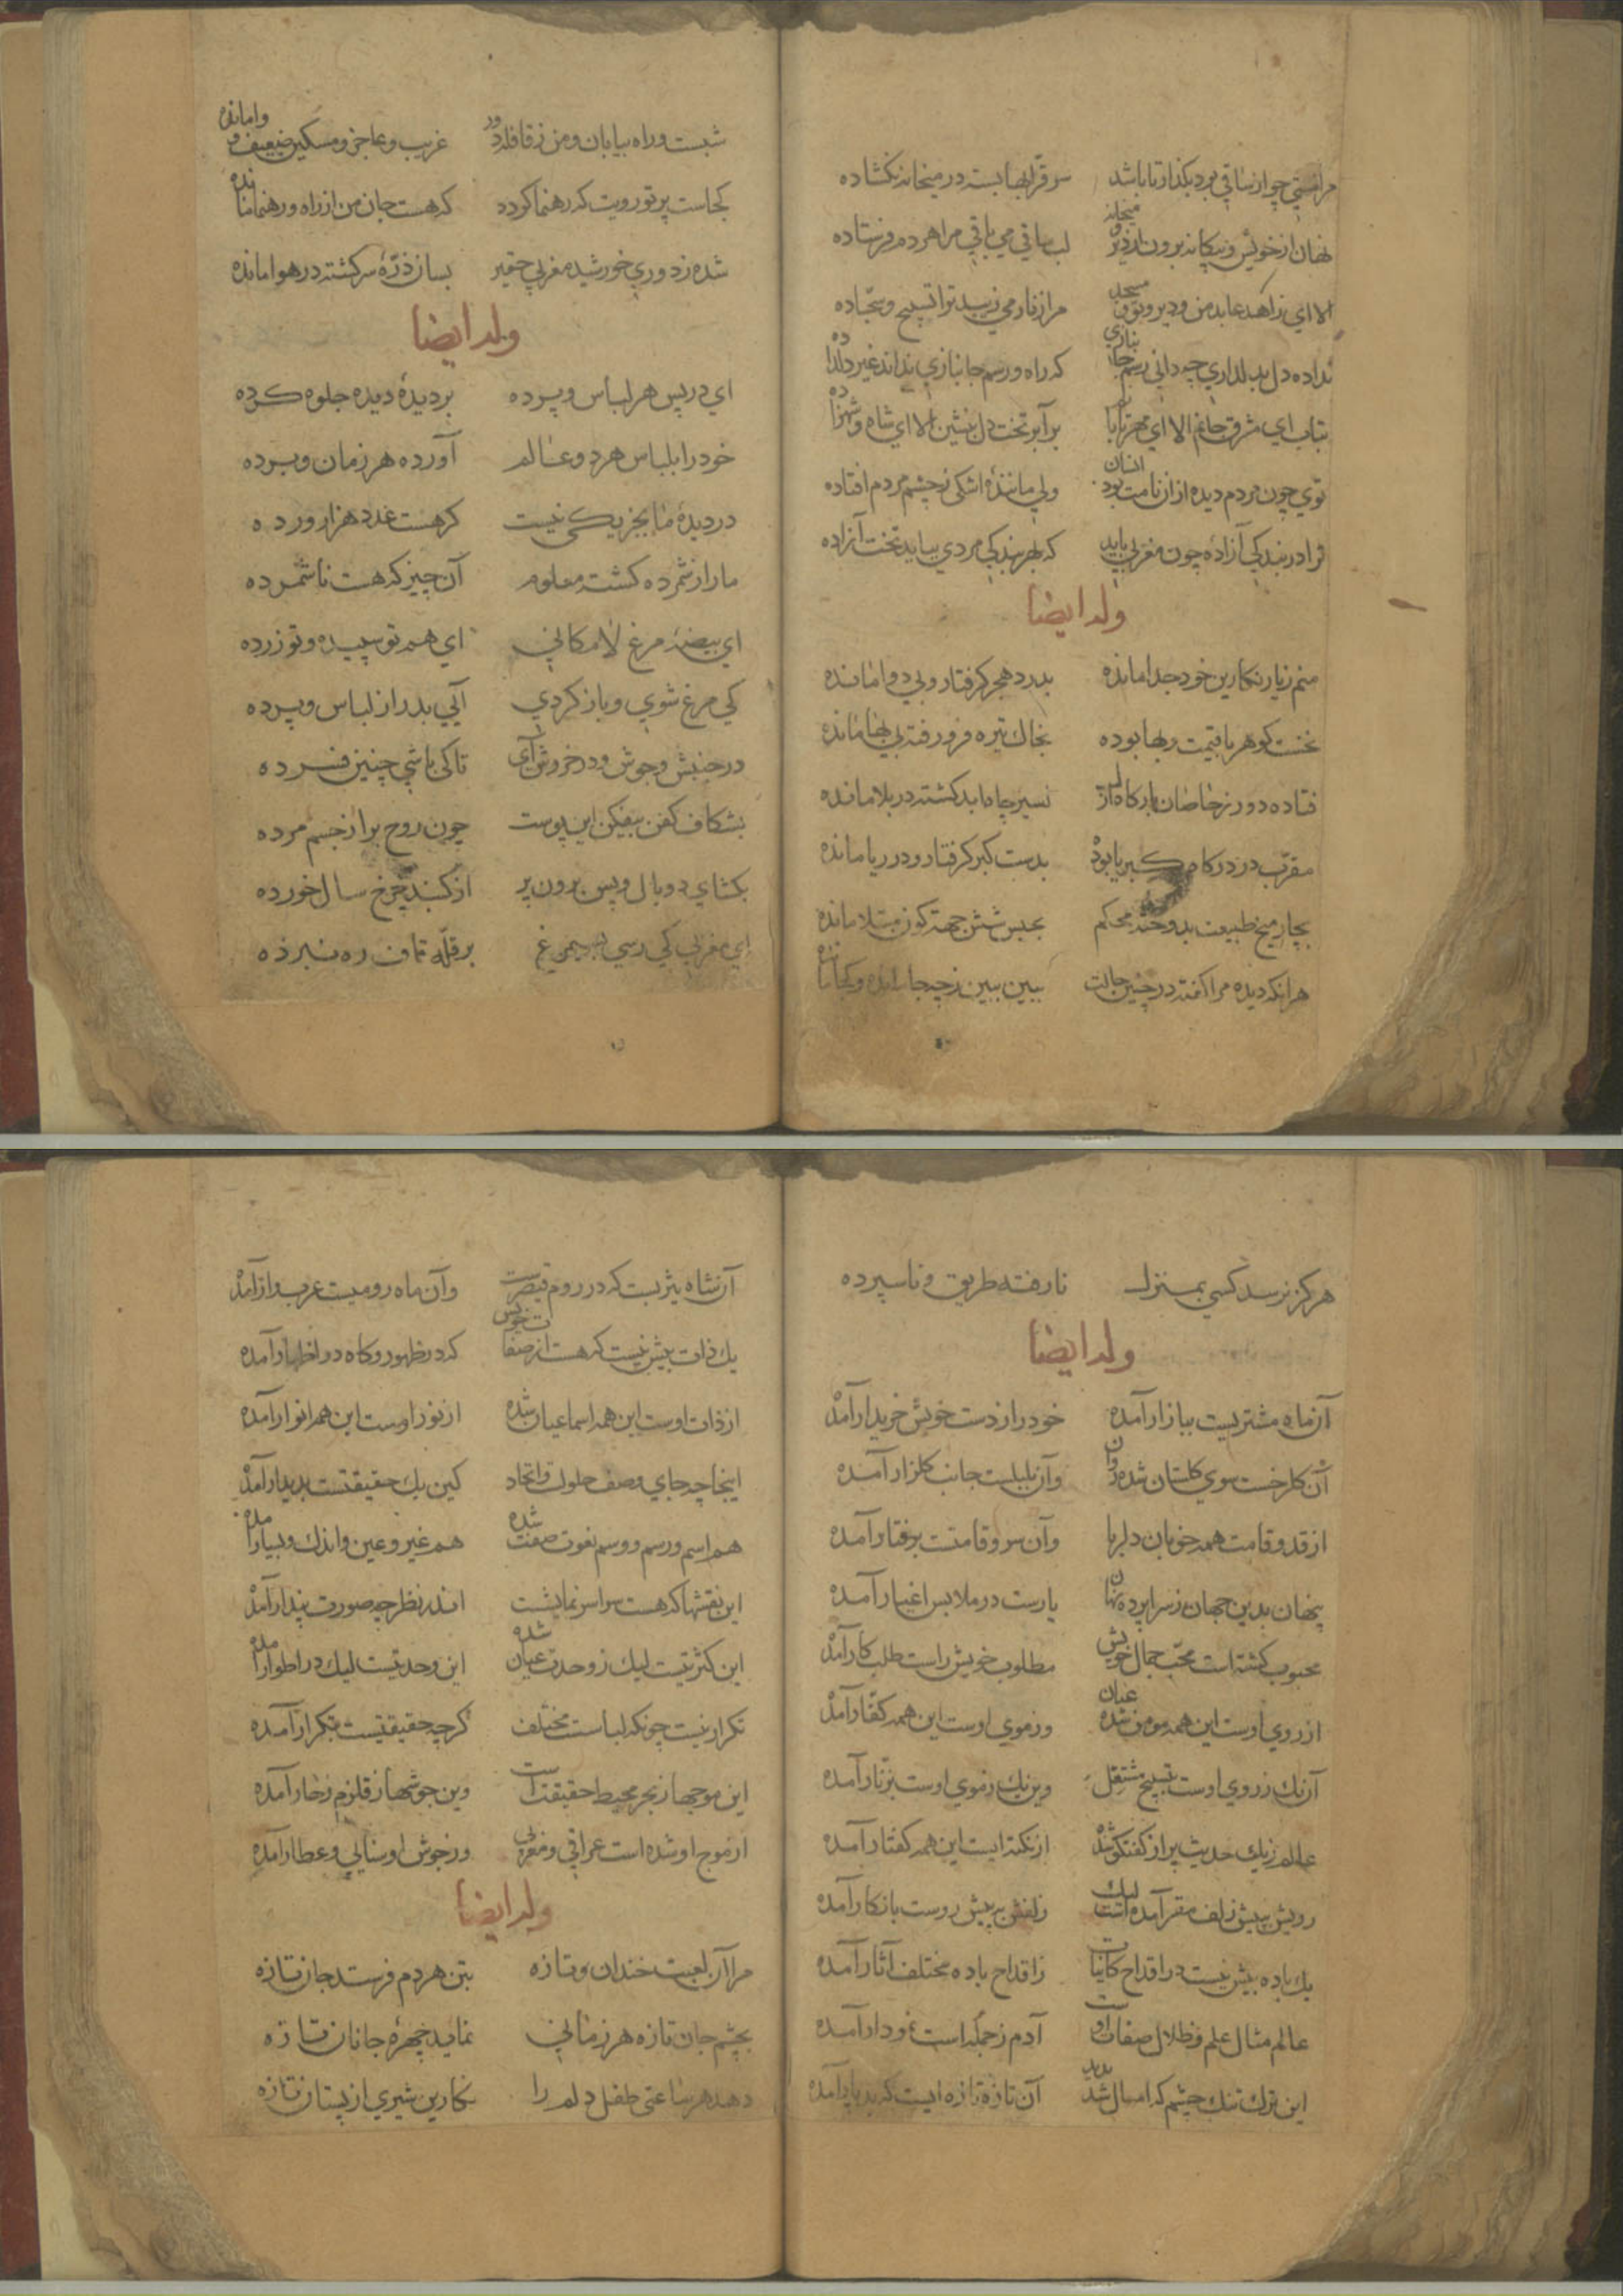 مرا مستی چو از ساقی بود بگذار تا باشد سر قرابها بسته در میخانه نکشاده
نهان از خویش و بیکانه برون از دیر و میخانه لب ساقی می باقی مرا هر دم فرستاده
الا ای زاهد عابد من و دیر و تو و مسجد مرا زنار می زیبد ترا تسبیح و سجاده
نداده دل بدلداری چه دانی رسم جانبازی که راه و رسم جانبازی نداند غیر دلداده
بتاب ای مشرق جانم الا ای مهر تابان برآ بر تخت دل بنشین الا ای شاه و شهزاده
توی چون مردم دیده ازان نامت بود انسان ولی مانندهٔ اشکی ز چشم مردم افتاده
ترا در بندکی آزاده چون مغربی باید که بهر بندکی مردی بباید تخت آزاده
وله ایضا
منم ز یار نکارین خود جدا مانده بدرد هجر کرفتار و بی دوا مانده
نخست کوهر با قیمت و بها بوده بخاک تیره فرو رفته بی بها مانده
فتاده دور ز خاصان بارکاه ازل اسیر چاه ابد کشته در بلا مانده
مقرب در درکاه کبریا بوده بدست کبر کرفتار و در ریا مانده
بچار میخ طبیعت بدوخته محکم بحبس شش جهة کون مبتلا مانده
هر انکه دیده مرا کفته در چنین حالت ببین ببین ز چه جا مانده و کجا مانده
شبست و راه بیابان و من ز قافله دور غریب و عاجز و مسکین ضعیف و وامانده
کجاست پرتو رویت که رهنما کردد که هست جان من از راه و رهنما مانده
شده ز دوری خورشید مغربی حقیر بسان ذرهٔ سرکشته در هوا مانده
وله ایضا
ای در پس هر لباس و پرده بر دیدهٔ دیده جلوه کرده
خود را بلباس هر دو عالم آورده هر زمان و برده
در دیدهٔ ما بجز یکی نیست کر هست عدد هزار ور ده
ما را ز شمرده کشته معلوم آن چیز که هست ناشمرده
ای بیضهٔ مرغ لامکانی ای هم تو سپیده و تو زرده
کی مرغ شوی و باز کردی آیی بدر از لباس و پرده
در جنبش و جوش و در خروش آی تا کی باشی چنین فسرده
بشکاف کفن بیفکن این پوست چون روح برا ز جسم مرده
بکشای دو بال و پس برون پر از کنبد چرخ سال خورده
ای مغربی کی رسی بسیمرغ بر قلهٔ قاف ره نبرده
هرکز نرسد کسی بمنزل نا رفته طریق و نا سپرده
وله ایضا
آن ماه مشتریست ببازار آمده خود را ز دست خویش خریدار آمده
آن کلرخست سوی کلستان شده روان وآن بلبلست جانب کلزار آمده
از قد و قامت همه خوبان دلربا وآن سرو قامتست برفتار آمده
پنهان بدین جهان ز سراپرده نهان یارست در ملابس اغیار آمده
محبوب کشته است محب جمال خویش مطلوب خویش راست طلبکار آمده
از روی اوست این همه مومن شده عیان وز موی اوست این همه کفار آمده
آن یک ز روی اوست بتسبیح مشتغل وین یک ز موی اوست بزنار آمده
عالم ز یک حدیث پر از کفتکو شده از نکته ایست این همه کفتار آمده
رویش بپیش زلف مقر آمده است لیک زلفش بپیش روست بانکار آمده
یک باده بیش نیست در اقداح کاینات ز اقداح باده مختلف آثار آمده
عالم مثال علم و ظلال صفات اوست آدم ز جمله است نمودار آمده
این ترک تنک چشم که امسال شد پدید آن تازه تازه ایست که پدیدار آمده
آن شاه یثربست که در روم قیصرست وآن ماه رومیست عرب وار آمده
یک ذات بیش نیست که هست از صفات خویش که در ظهور و کاه در اظهار آمده
از ذات اوست این همه اسما عیان شده از نور اوست این همه انوار آمده
اینجا چه جای وصف حلولست و اتحاد کین یک حقیقتست پدیدار آمده
هم اسم و رسم و وسم نعوت صفت شده هم غیر و عین و اندک و بسیار آمده
این نقشها که هست سراسر نمایشست اندر نظر چه صورت پندار آمده
این کثرتیست لیک ز وحدت عیان شده این وحدتیست لیک در اطوار آمده
تکرار نیست چونکه لباسست مختلف کر چه حقیقتیست بتکرار آمده
این موجها ز بحر محیط حقیقت است وین جوشها ز قلزم زخار آمده
از موج او شده است عراقی و مغربی وز جوش او سنایی و عطار آمده
وله ایضا
مرا آن لعبت خندان و تازه بتن هر دم فرستد جان تازه
بچشم جان تازه هر زمانی نماید چهرهٔ جانان تازه
دهد هر ساعتی طفل دلم را نکارین شیری از پستان تازه